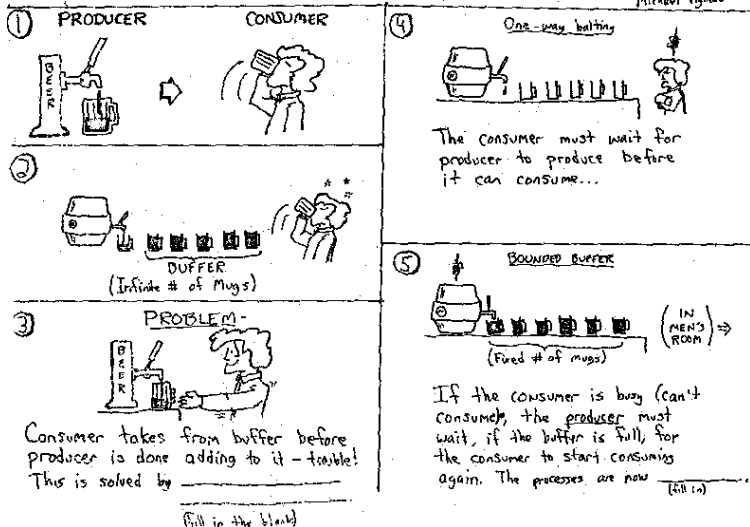 ① PRODUCER CONSUMER
BEER
②
BUFFER
(Infinite # of Mugs)
③ PROBLEM-
BEER
Consumer takes from buffer before
producer is done adding to it - trouble!
This is solved by
(fill in the blank)
Michael
④ One-way halting
The consumer must wait for
producer to produce before
it can consume...
⑤ BOUNDED BUFFER
(Fixed # of mugs)
(IN
MEN'S
ROOM) ⇒
If the consumer is busy (can't
consume), the producer must
wait, if the buffer is full, for
the consumer to start consuming
again. The processes are now
(fill in)